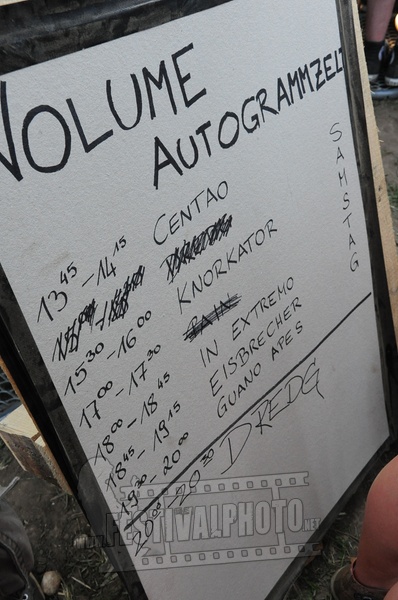 VOLUME
AUTOGRAMMZELT
SAMSTAG
13 45 - 14 15 CENTAO
15 30 - 16 00 KNORKATOR
17 00 - 17 30 PAIN
18 00 - 18 45 IN EXTREMO
18 45 - 19 15 EISBRECHER
19 30 - 20 00 GUANO APES
20 00 - 20 30 DREDG
FESTIVALPHOTO.NET